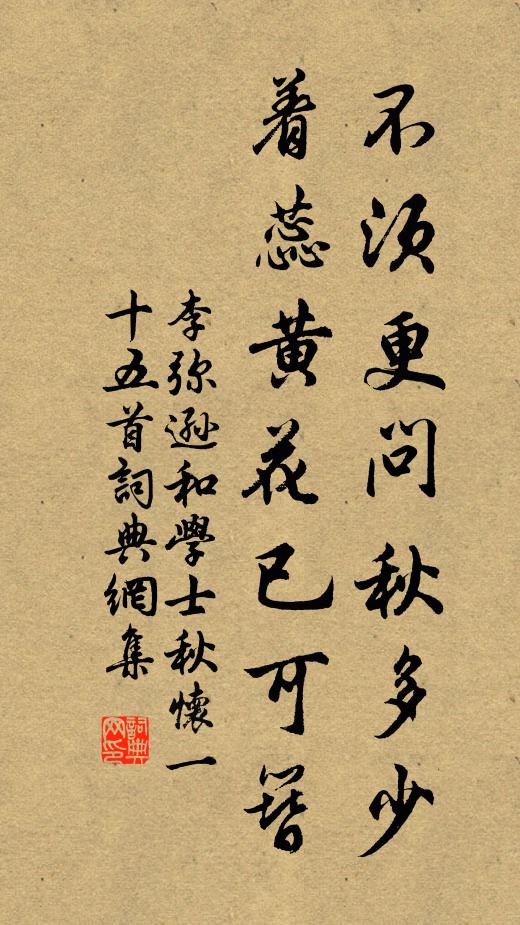 不須更問秋多少
着蕊黄花已可簪
李弥遜和學士秋懷一
十五首詞典網集
詞典
网印